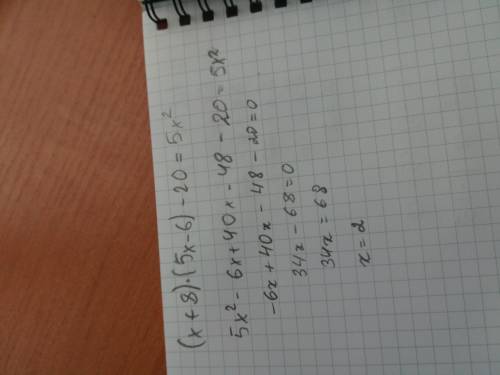 (x+8)·(5x-6)-20=5x²
5x²-6x+40x-48-20=5x²
-6x+40x-48-20=0
34x-68=0
34x=68
x=2